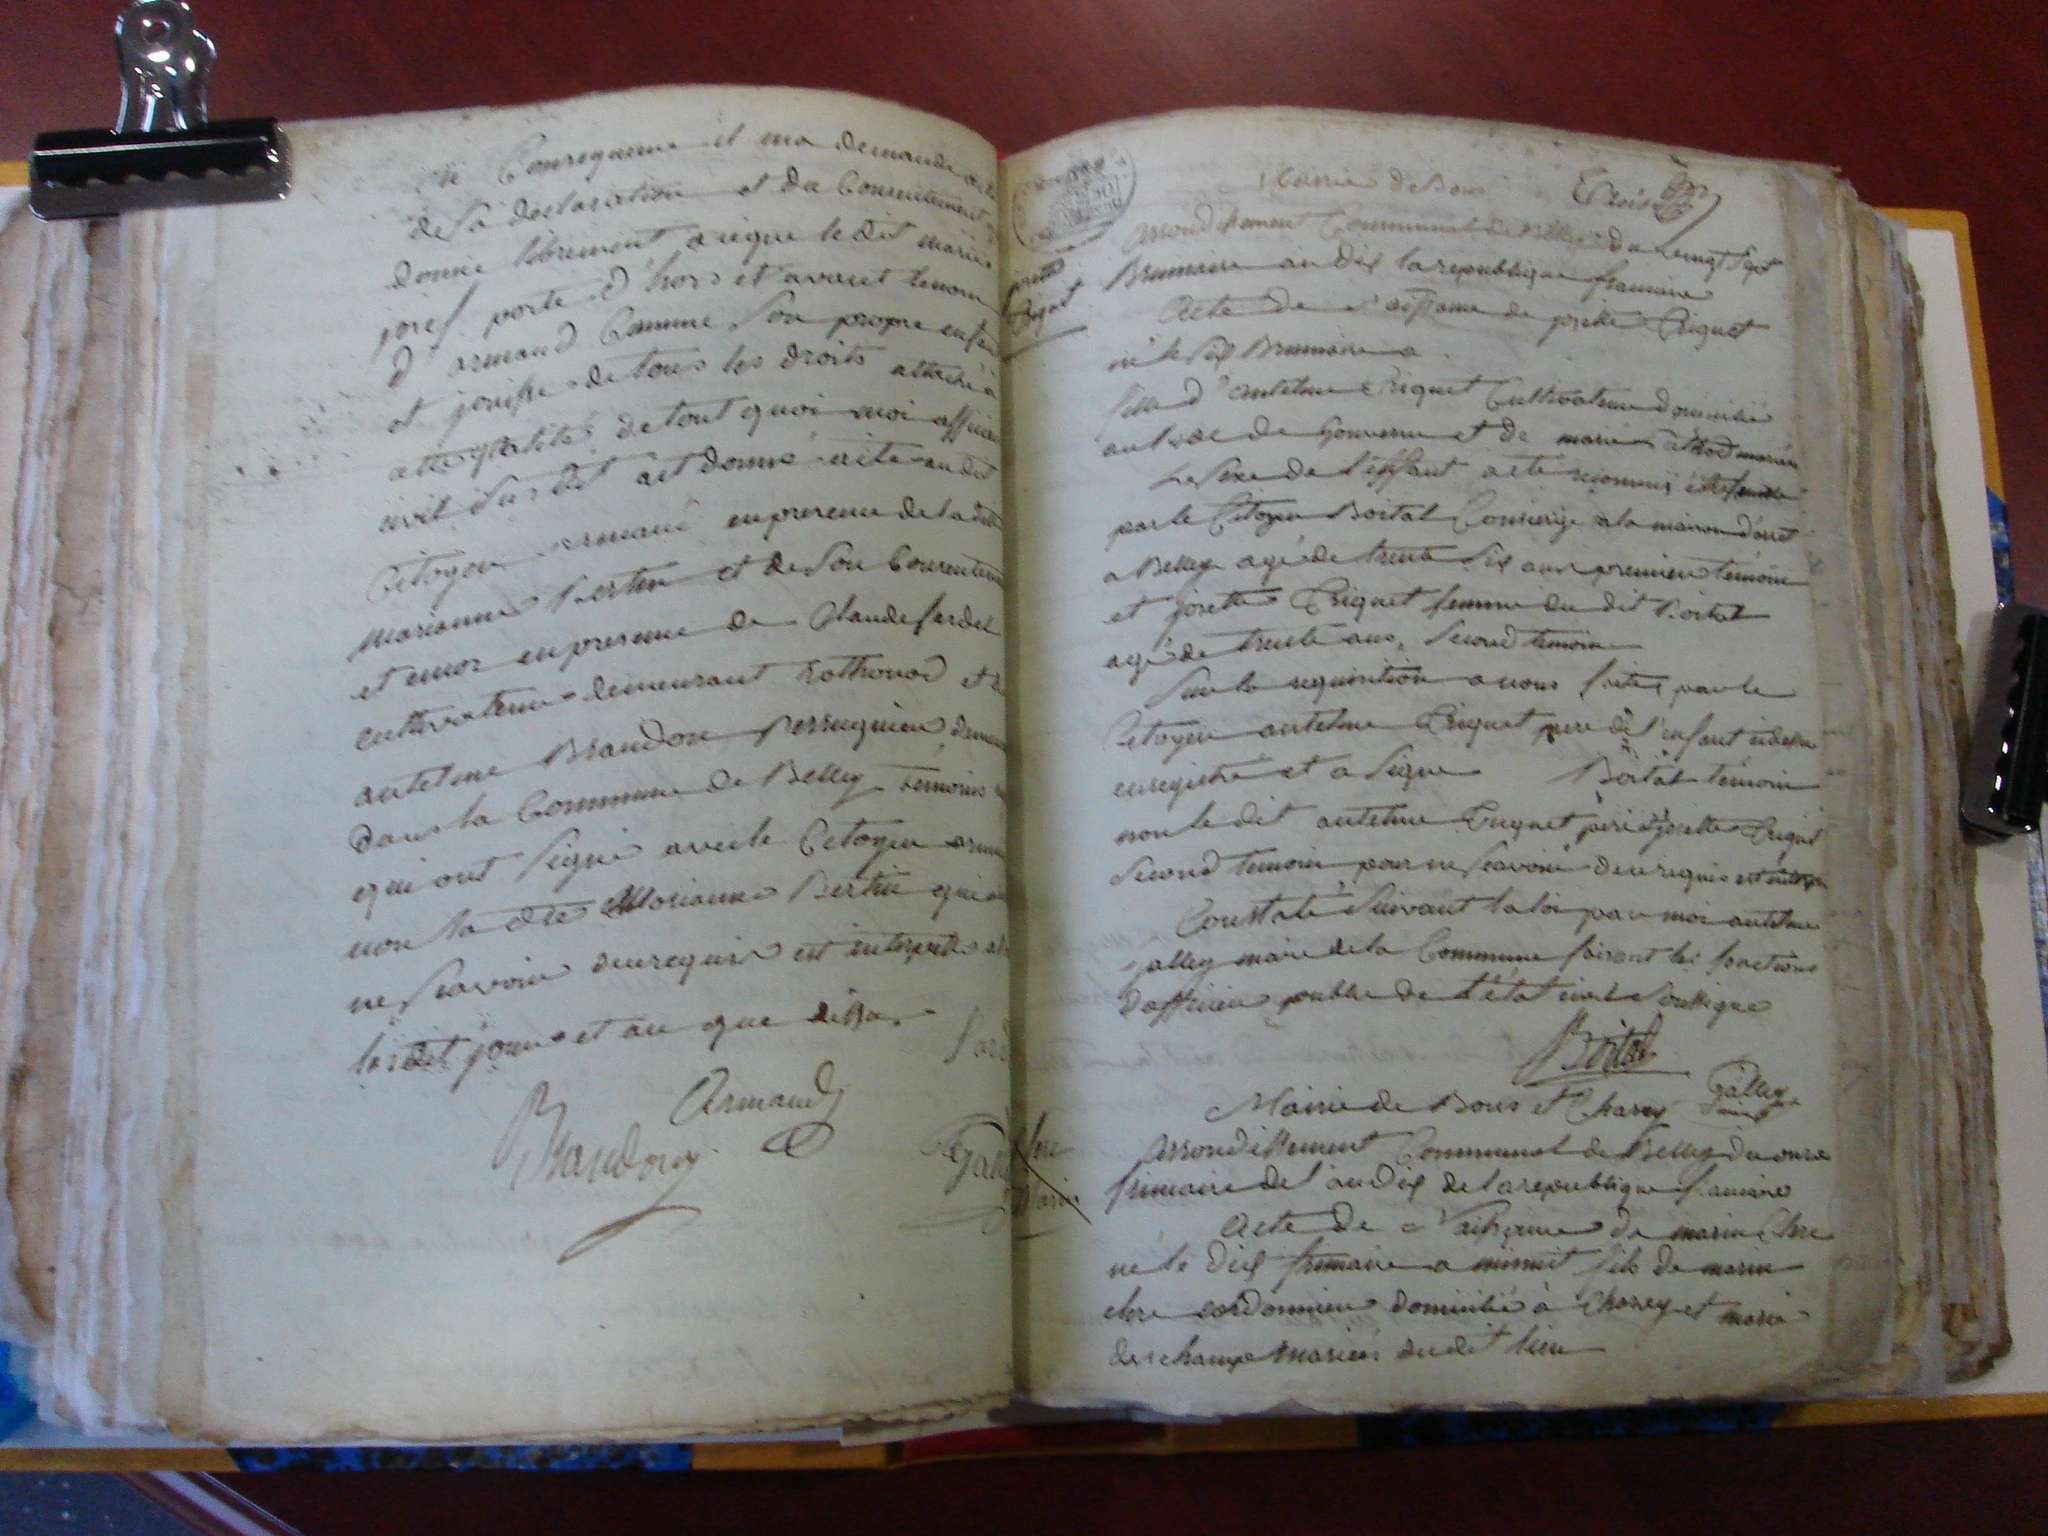 en Consequance il ma demandé acte
de sa declaration et du Consentement
donné librement a ceque le dit marie
josef porte d'hors et avant lenom
d'armand Comme Son propre enfant
et jouisse de tous les droits attaché a
cette qualité de tout quoi moi officier
civil susdit ait donné acte au dit
Citoyen armand en presence de la dite
marianne Bertin et de Son Consentement
et encor en presence de Claude fardel
cultivateur demeurant Rothonod et
antelme Brandon Perruquier
dans la Commune de Belley temoins
qui ont Signé avec le Citoyen armand
non la dte Marianne Bertin qui
ne Scavoir de ce requise est interpellé
lesdit jour et an que dessus
Armand
Brandon
Mairie de Bons
Trois
josette
Triquet
arrondissement Communal de Belley du vingt Sept
Brumaire an dix la republique francaise
Acte de Naissance de josette Triquet
né le Six Brumaire a
fille d'antelme Triquet Cultivateur domicilié
et de marie
Le Sexe de l'enfant a eté reconnu etre femelle
par le Citoyen Boital Concierge a la maison d'arret
a Belley agé de trente Six ans premier temoin
et josette Triquet femme du dit Boital
agé de trente ans, Second temoin
Sur la requisition a nous faites par le
Citoyen antelme Triquet pere de l'enfant
enregistré et a Signé Boital temoin
non le dit antelme Triquet pere et josette Triquet
Second temoin pour ne Scavoir de ce requis et interpellé
Constaté Suivant la loi par moi antelme
galley maire de la Commune faisant les fonctions
d'officier public de l'état civil Soussigné
Boital
Galley
maire
Mairie de Bons et Chazey
arrondissement Communal de Belley du onze
frimaire de l'an dix de la republique francaise
Clere
Marin
Acte de Naissance de marin Clere
né le dix frimaire a minuit fils de marin
clere cordonnier domicilié à Chazey et marie
deschamps mariés du dit lieu